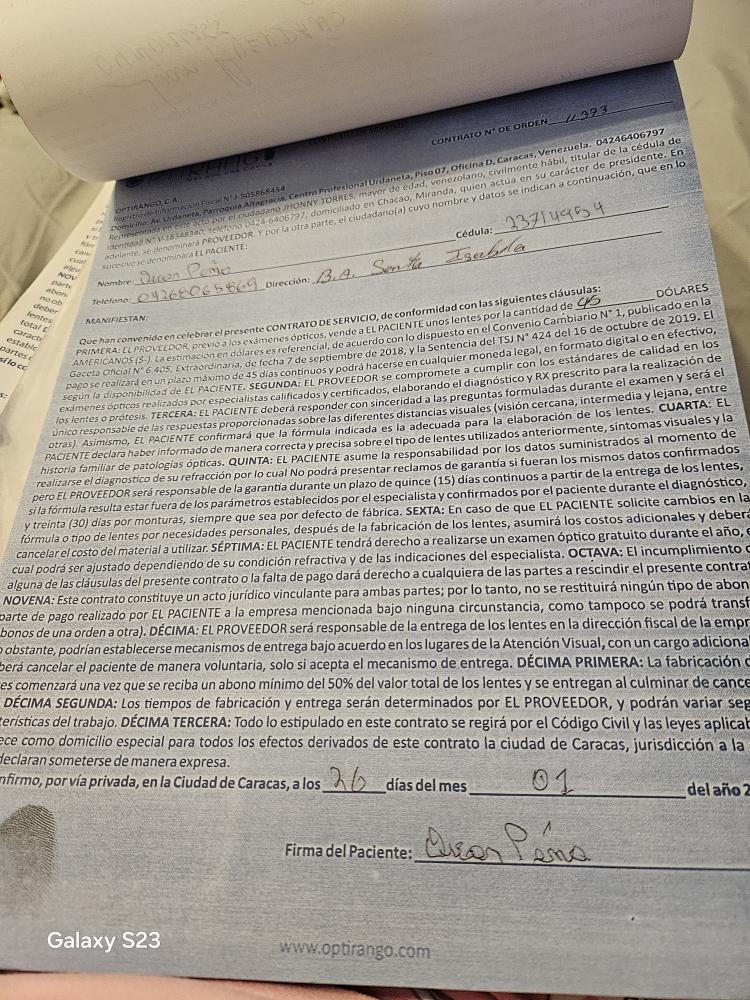 CONTRATO N° DE ORDEN 11393
OPTIRANGO, C.A.
Registro de Información Fiscal N°J-505868454
Domicilio: Av. Urdaneta, Parroquia Altagracia, Centro Profesional Urdaneta, Piso 07, Oficina D, Caracas, Venezuela. 04246406797
Representada en este acto por el ciudadano JHONNY TORRES, mayor de edad, venezolano, civilmente hábil, titular de la cédula de
identidad N° V-18548340, teléfono 0424-6406797, domiciliado en Chacao, Miranda, quien actúa en su carácter de presidente. En
adelante, se denominará PROVEEDOR. Y por la otra parte, el ciudadano(a) cuyo nombre y datos se indican a continuación, que en lo
sucesivo se denominará EL PACIENTE:
Nombre: Peña Cédula:
Teléfono: 04268065869 Dirección: B.A. Santa Isabela
MANIFIESTAN:
Que han convenido en celebrar el presente CONTRATO DE SERVICIO, de conformidad con las siguientes cláusulas:
PRIMERA: EL PROVEEDOR, previo a los exámenes ópticos, vende a EL PACIENTE unos lentes por la cantidad de 45 DÓLARES
AMERICANOS ($-). La estimación en dólares es referencial, de acuerdo con lo dispuesto en el Convenio Cambiario N° 1, publicado en la
Gaceta Oficial N° 6.405, Extraordinaria, de fecha 7 de septiembre de 2018, y la Sentencia del TSJ N° 424 del 16 de octubre de 2019. El
pago se realizará en un plazo máximo de 45 días continuos y podrá hacerse en cualquier moneda legal, en formato digital o en efectivo,
según la disponibilidad de EL PACIENTE. SEGUNDA: EL PROVEEDOR se compromete a cumplir con los estándares de calidad en los
exámenes ópticos realizados por especialistas calificados y certificados, elaborando el diagnóstico y RX prescrito para la realización de
los lentes o prótesis. TERCERA: EL PACIENTE deberá responder con sinceridad a las preguntas formuladas durante el examen y será el
único responsable de las respuestas proporcionadas sobre las diferentes distancias visuales (visión cercana, intermedia y lejana, entre
otras). Asimismo, EL PACIENTE confirmará que la fórmula indicada es la adecuada para la elaboración de los lentes. CUARTA: EL
PACIENTE declara haber informado de manera correcta y precisa sobre el tipo de lentes utilizados anteriormente, síntomas visuales y la
historia familiar de patologías ópticas. QUINTA: EL PACIENTE asume la responsabilidad por los datos suministrados al momento de
realizarse el diagnostico de su refracción por lo cual No podrá presentar reclamos de garantía si fueran los mismos datos confirmados
pero EL PROVEEDOR será responsable de la garantía durante un plazo de quince (15) días continuos a partir de la entrega de los lentes,
si la fórmula resulta estar fuera de los parámetros establecidos por el especialista y confirmados por el paciente durante el diagnóstico,
y treinta (30) días por monturas, siempre que sea por defecto de fábrica. SEXTA: En caso de que EL PACIENTE solicite cambios en la
fórmula o tipo de lentes por necesidades personales, después de la fabricación de los lentes, asumirá los costos adicionales y deberá
cancelar el costo del material a utilizar. SÉPTIMA: EL PACIENTE tendrá derecho a realizarse un examen óptico gratuito durante el año, e
cual podrá ser ajustado dependiendo de su condición refractiva y de las indicaciones del especialista. OCTAVA: El incumplimiento
alguna de las cláusulas del presente contrato o la falta de pago dará derecho a cualquiera de las partes a rescindir el presente contrat
NOVENA: Este contrato constituye un acto jurídico vinculante para ambas partes; por lo tanto, no se restituirá ningún tipo de abon
parte de pago realizado por EL PACIENTE a la empresa mencionada bajo ninguna circunstancia, como tampoco se podrá transf
bonos de una orden a otra). DÉCIMA: EL PROVEEDOR será responsable de la entrega de los lentes en la dirección fiscal de la empr
obstante, podrían establecerse mecanismos de entrega bajo acuerdo en los lugares de la Atención Visual, con un cargo adiciona
berá cancelar el paciente de manera voluntaria, solo si acepta el mecanismo de entrega. DÉCIMA PRIMERA: La fabricación
es comenzará una vez que se reciba un abono mínimo del 50% del valor total de los lentes y se entregan al culminar de cance
DÉCIMA SEGUNDA: Los tiempos de fabricación y entrega serán determinados por EL PROVEEDOR, y podrán variar seg
terísticas del trabajo. DÉCIMA TERCERA: Todo lo estipulado en este contrato se regirá por el Código Civil y las leyes aplicab
ece como domicilio especial para todos los efectos derivados de este contrato la ciudad de Caracas, jurisdicción a la
declaran someterse de manera expresa.
nfirmo, por vía privada, en la Ciudad de Caracas, a los 26 días del mes 01 del año 2
Firma del Paciente: Peña
www.optirango.com
Galaxy S23